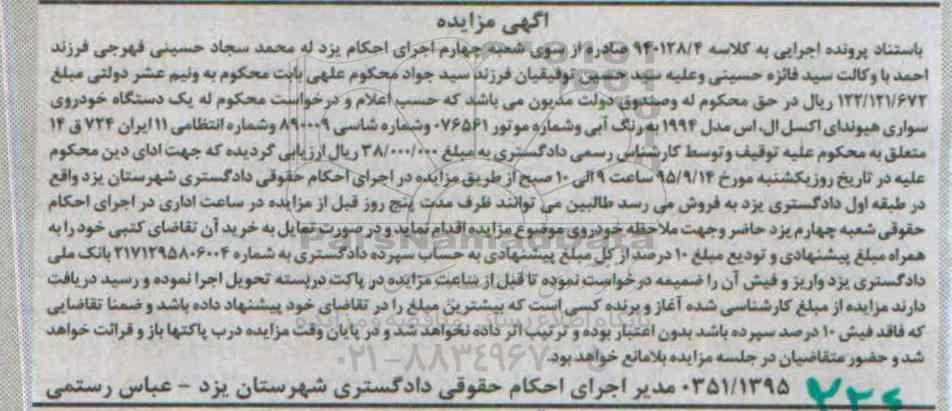 آگهی مزایده
باستناد پرونده اجرایی به کلاسه ۹۴۰۱۲۸/۴ صادره از سوی شعبه چهارم اجرای احکام یزد له محمد سجاد حسینی فهرجی فرزند
احمد با وکالت سید فائزه حسینی وعلیه سید حسین توفیقیان فرزند سید جواد محکوم علهی بابت محکوم به ونیم عشر دولتی مبلغ
۱۲۲/۱۲۱/۶۷۲ ریال در حق محکوم له وصندوق دولت مدیون می باشد که حسب اعلام و درخواست محکوم له یک دستگاه خودروی
سواری هیوندای اکسل ال.اس مدل ۱۹۹۴ به رنگ آبی وشماره موتور ۰۷۶۵۶۱ وشماره شاسی ۸۹۰۰۰۹ وشماره انتظامی ۱۱ ایران ۷۲۴ ق ۱۴
متعلق به محکوم علیه توقیف وتوسط کارشناس رسمی دادگستری به مبلغ ۳۸/۰۰۰/۰۰۰ ریال ارزیابی گردیده که جهت ادای دین محکوم
علیه در تاریخ روز یکشنبه مورخ ۹۵/۹/۱۴ ساعت ۹ الی ۱۰ صبح از طریق مزایده در اجرای احکام حقوقی دادگستری شهرستان یزد واقع
در طبقه اول دادگستری یزد به فروش می رسد طالبین می توانند ظرف مدت پنج روز قبل از مزایده در ساعت اداری در اجرای احکام
حقوقی شعبه چهارم یزد حاضر وجهت ملاحظه خودروی موضوع مزایده اقدام نماید و در صورت تمایل به خرید آن تقاضای کتبی خود را به
همراه مبلغ پیشنهادی و تودیع مبلغ ۱۰ درصد از کل مبلغ پیشنهادی به حساب سپرده دادگستری به شماره ۲۱۷۱۲۹۵۸۰۶۰۰۴ بانک ملی
دادگستری یزد واریز و فیش آن را ضمیمه درخواست نموده تا قبل از ساعت مزایده در پاکت دربسته تحویل اجرا نموده و رسید دریافت
دارند مزایده از مبلغ کارشناسی شده آغاز و برنده کسی است که بیشترین مبلغ را در تقاضای خود پیشنهاد داده باشد و ضمنا تقاضایی
که فاقد فیش ۱۰ درصد سپرده باشد بدون اعتبار بوده و ترتیب اثر داده نخواهد شد و در پایان وقت مزایده درب پاکتها باز و قرائت خواهد
شد و حضور متقاضیان در جلسه مزایده بلامانع خواهد بود.
۰۳۵۱/۱۳۹۵ مدیر اجرای احکام حقوقی دادگستری شهرستان یزد - عباس رستمی
ParsNamadData
۰۲۱-۸۸۳۴۹۶۷